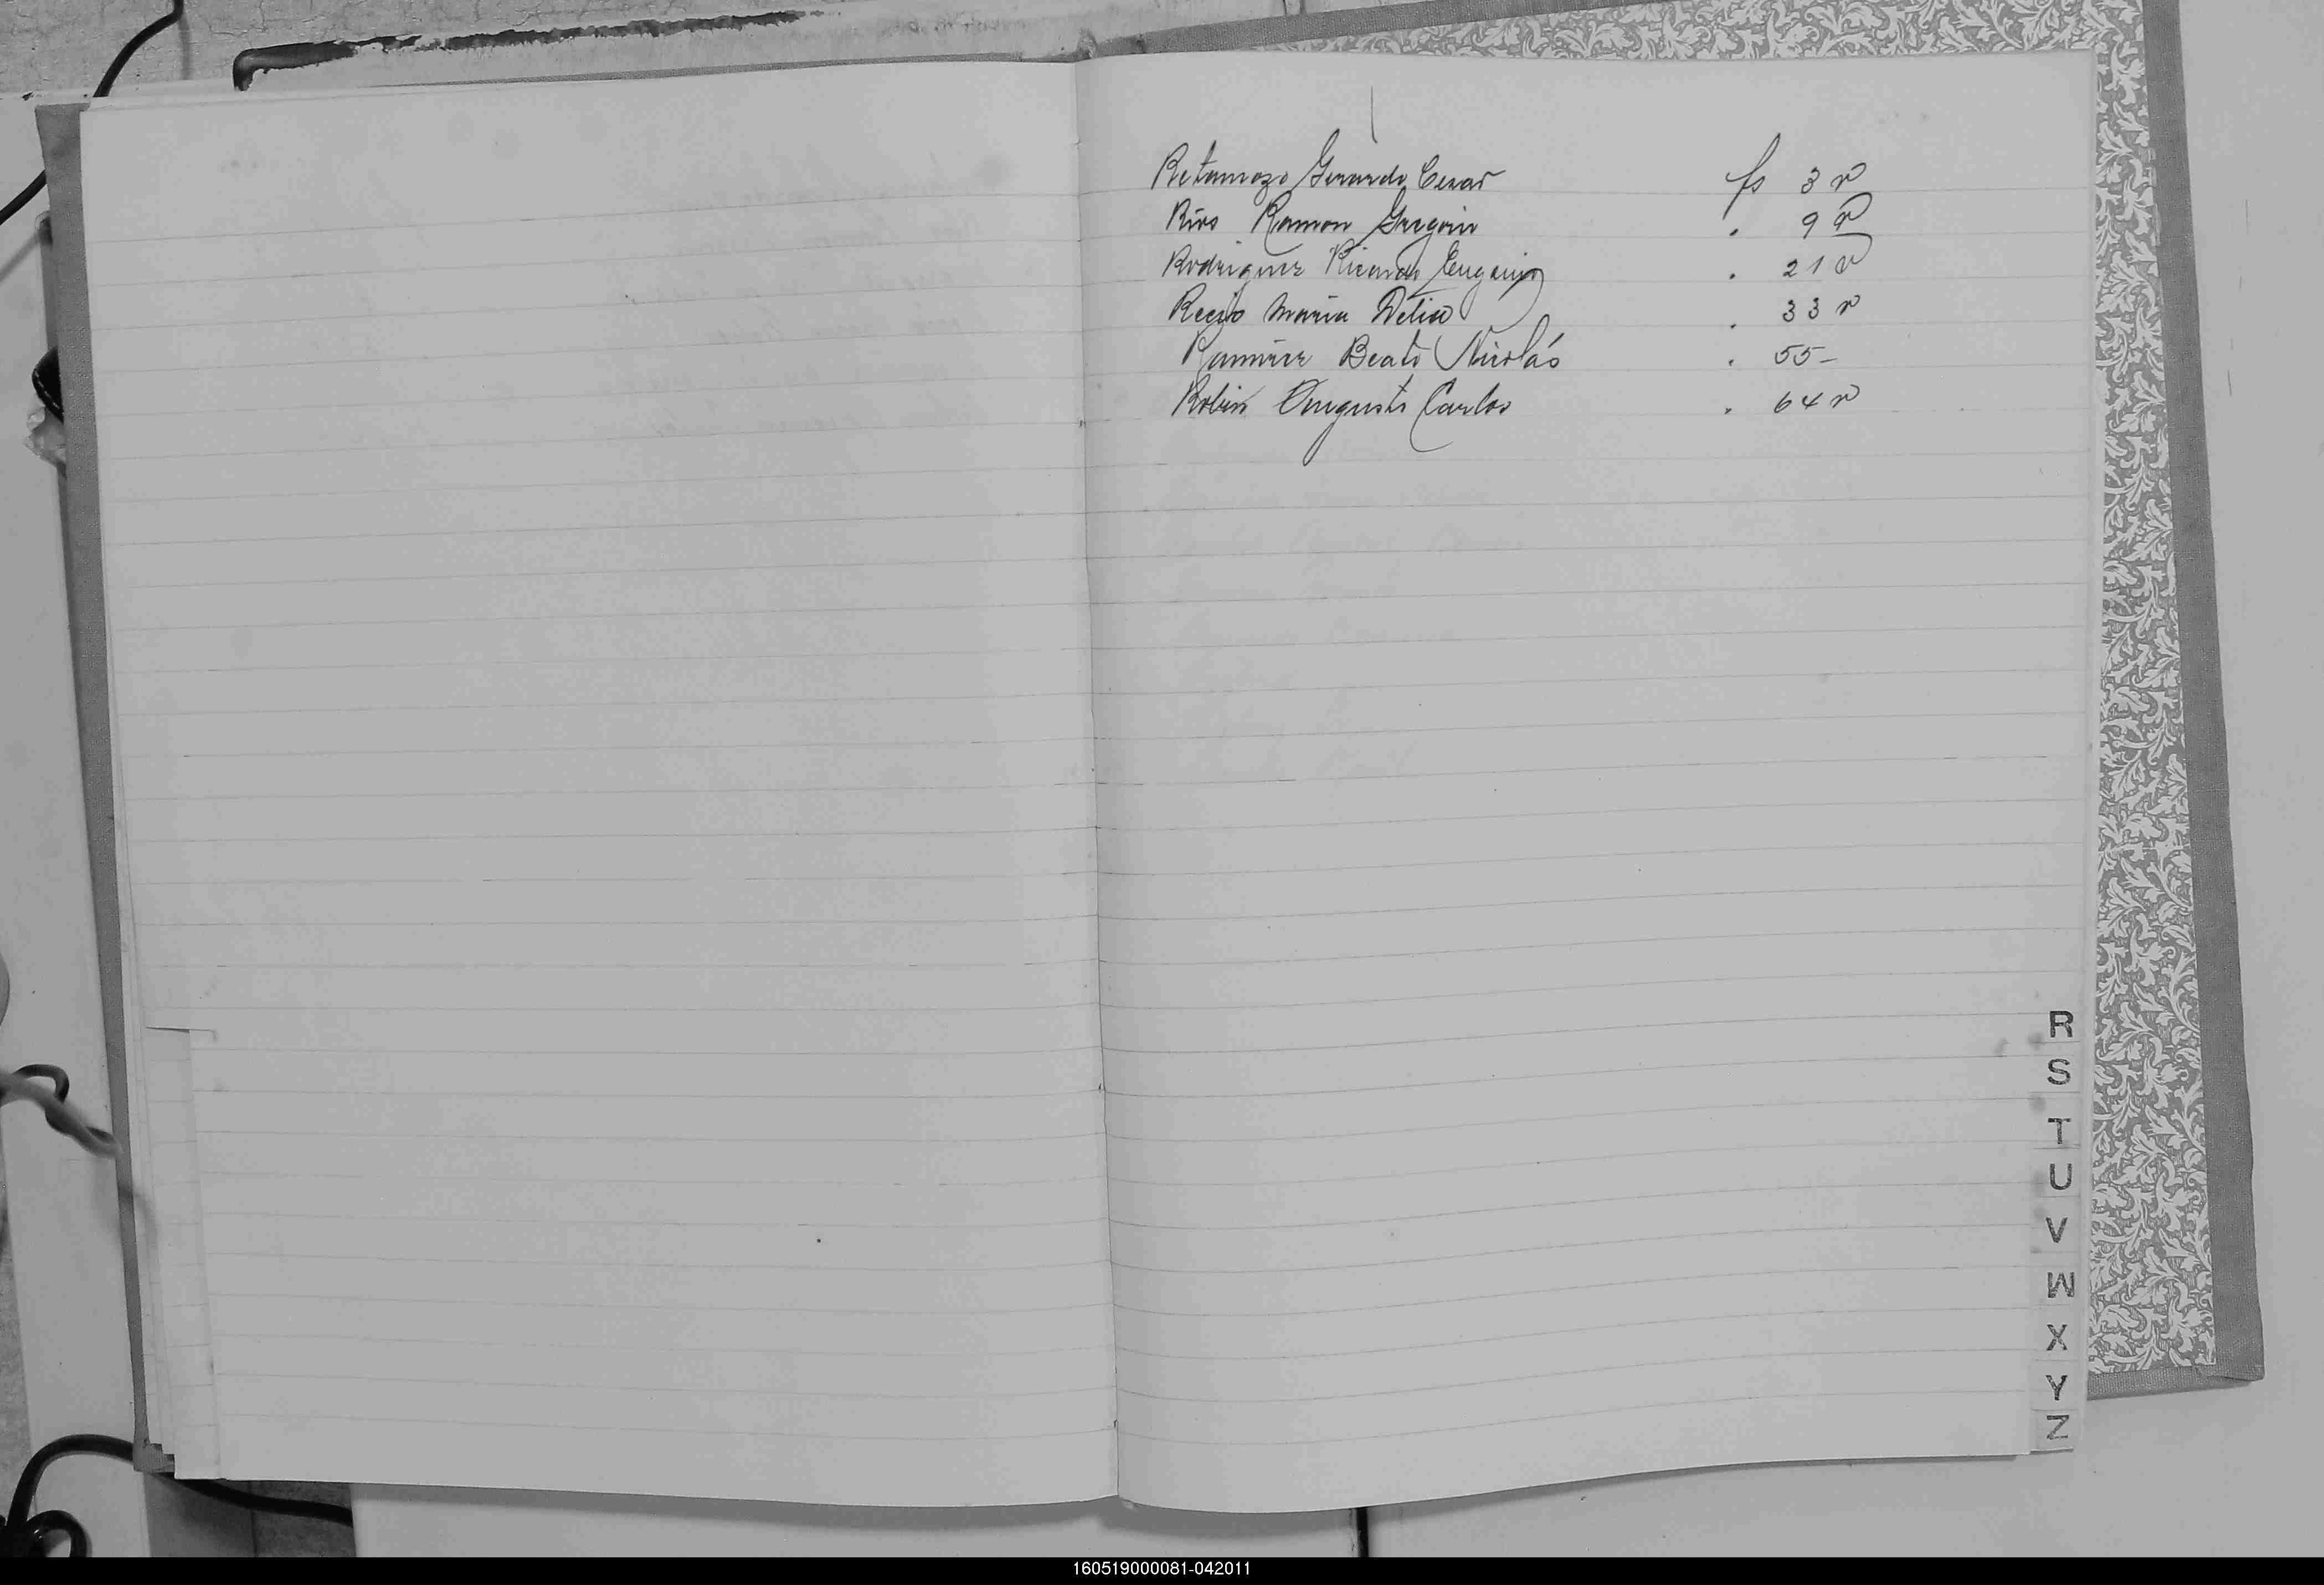 Retamozo Gerardo Cesar fs 3 v
Rios Ramon Gregorio . 9 v
Rodriguez Ricardo Eugenio . 21 v
Recio Maria Delia . 33 v
Ramirez Beato Nicolás . 55-
Robin Augusto Carlos . 64 v
R
S
T
U
V
W
X
Y
Z
160519000081-042011